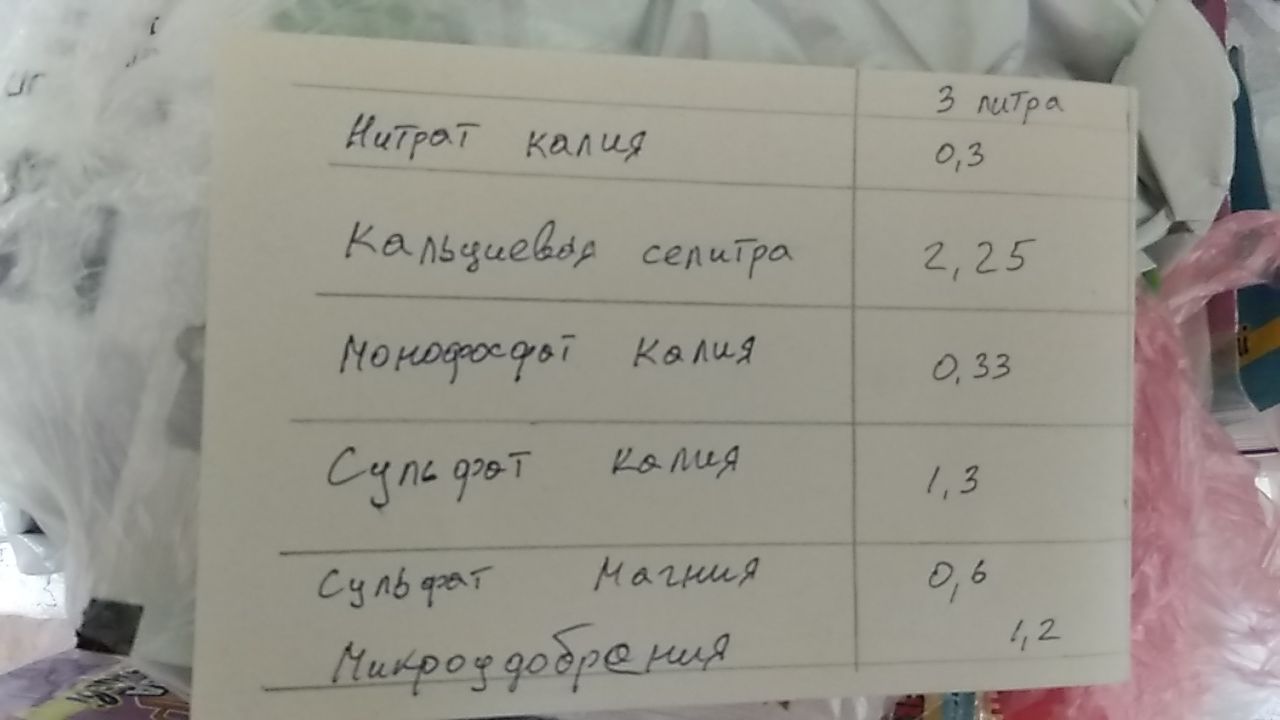 3 литра
Нитрат калия 0,3
Кальциевая селитра 2,25
Монофосфат калия 0,33
Сульфат калия 1,3
Сульфат магния 0,6
Микроудобрения 1,2